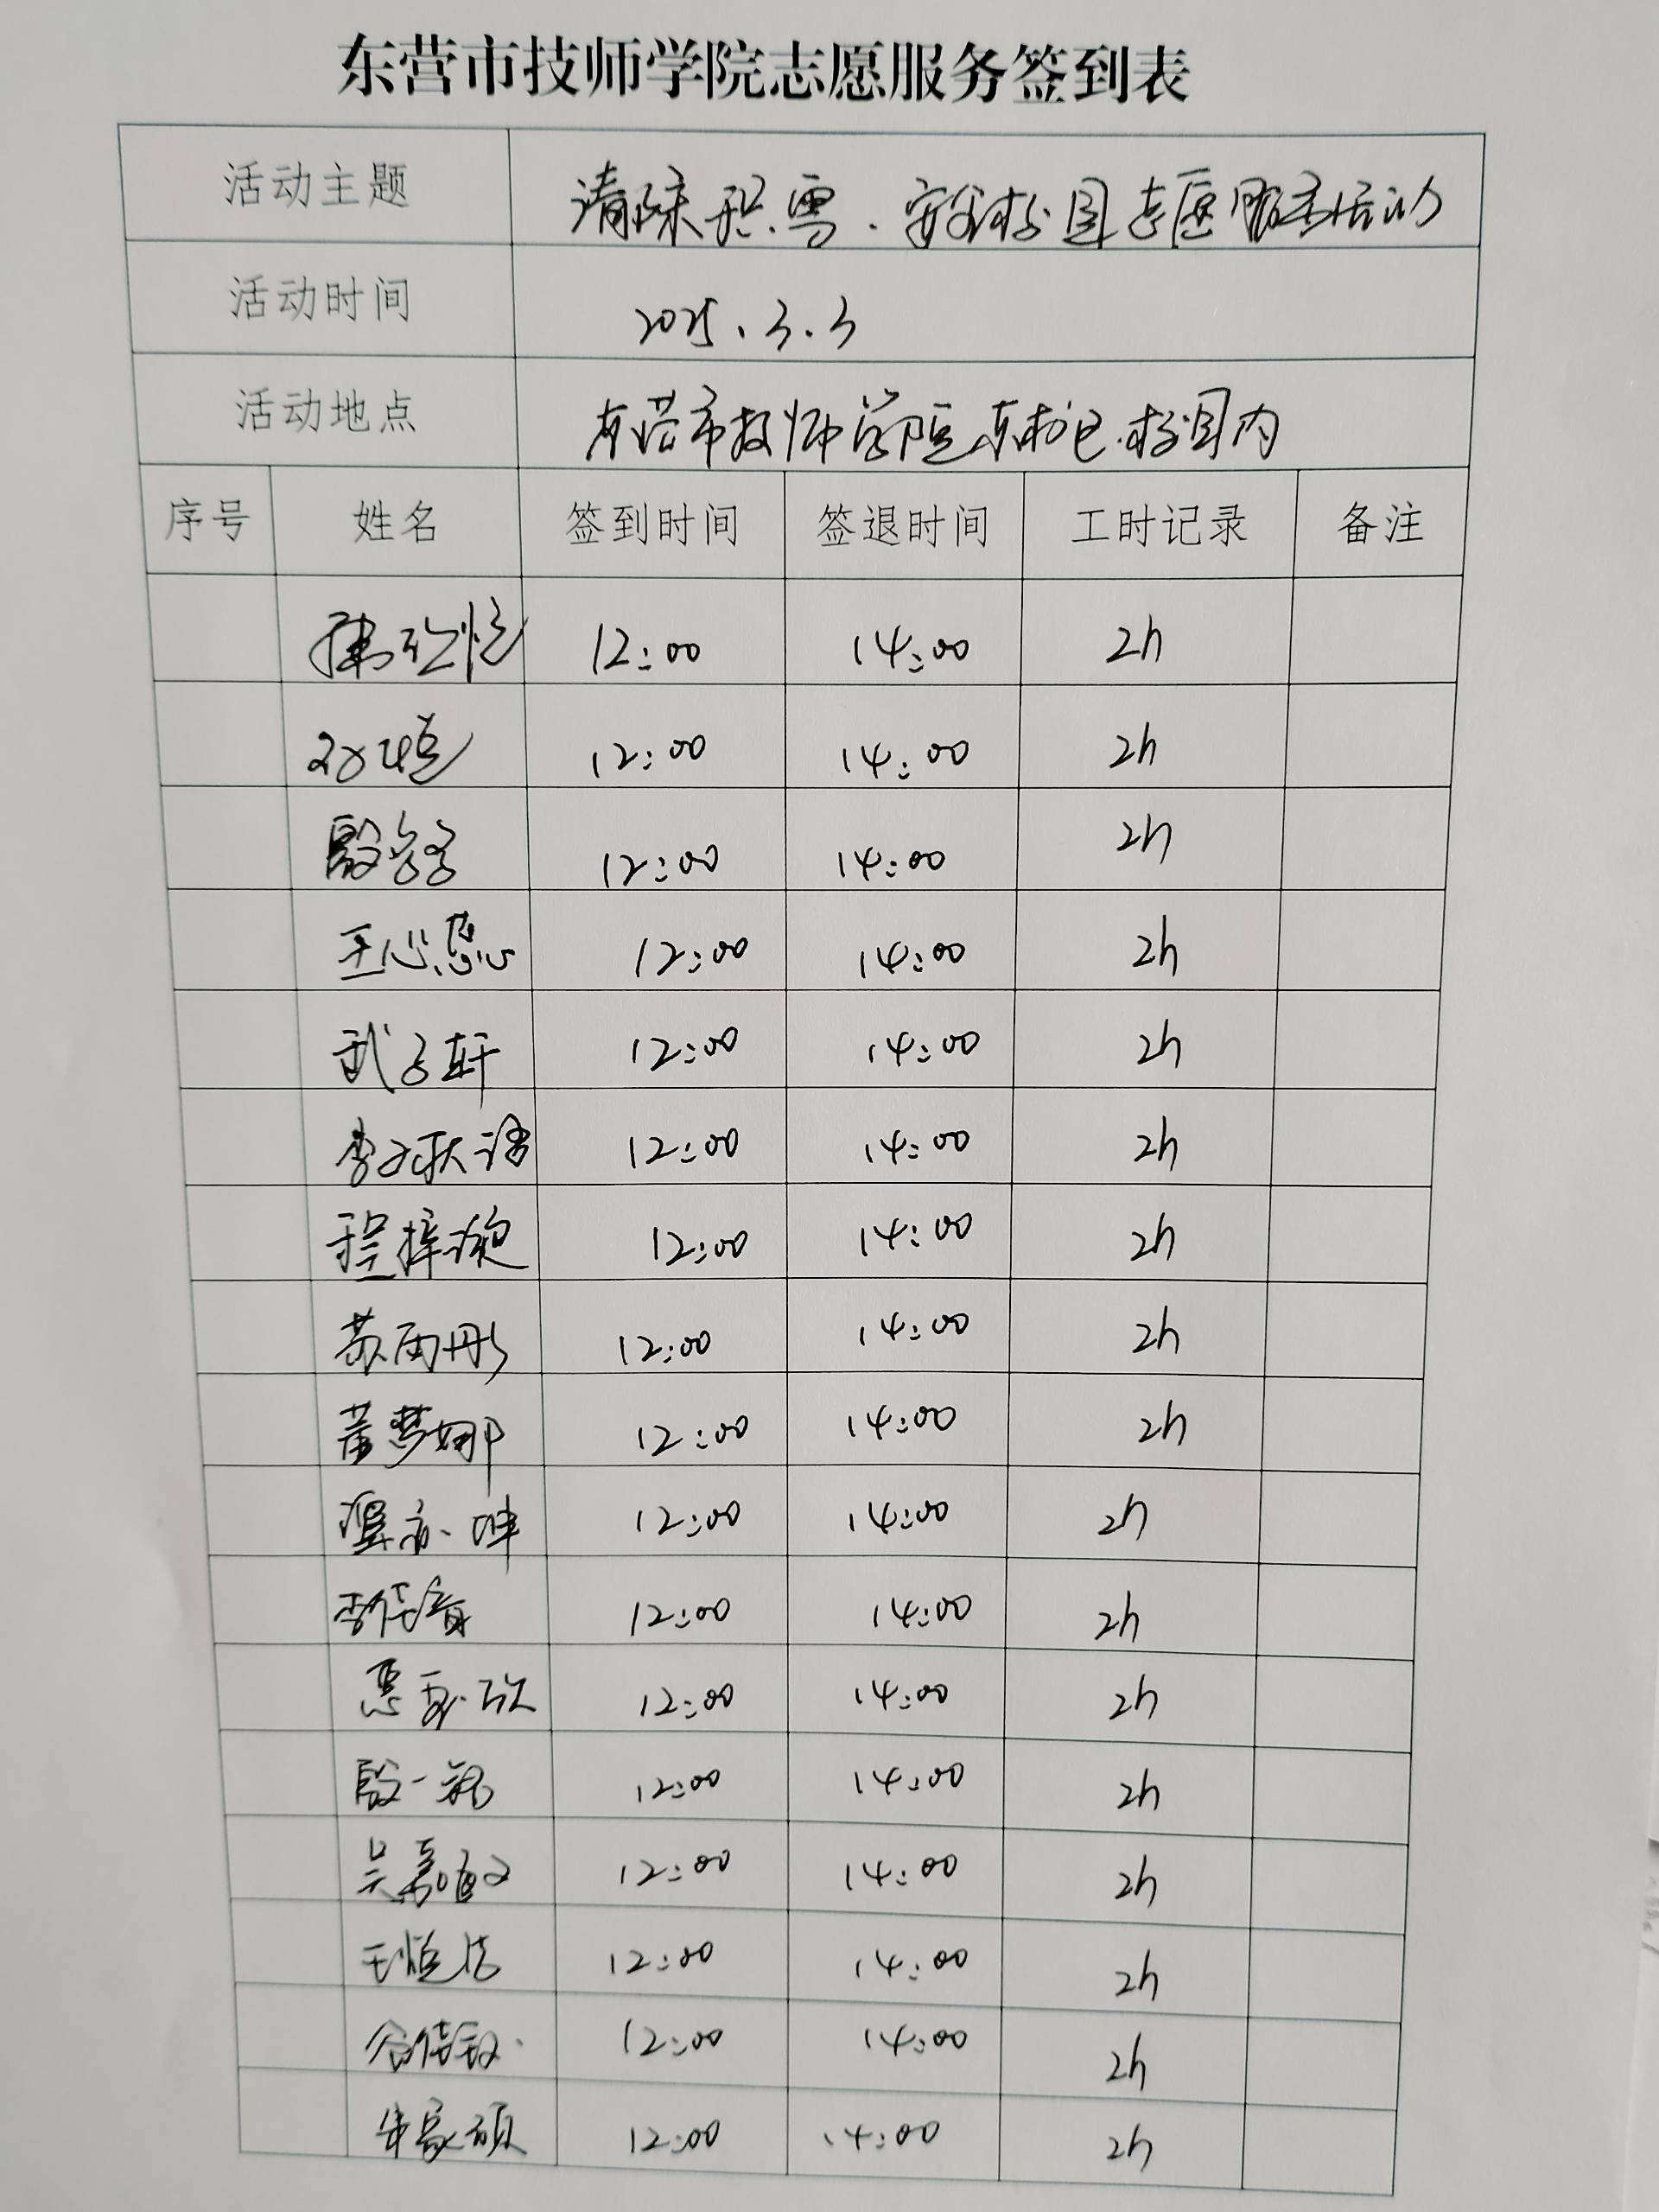 东营市技师学院志愿服务签到表
活动主题 清除积雪.安全校园志愿服务活动
活动时间 2025.3.3
活动地点 东营市技师学院东校区校园内
序号 姓名 签到时间 签退时间 工时记录 备注
12:00 14:00 2h
12:00 14:00 2h
12:00 14:00 2h
王心愿 12:00 14:00 2h
武子轩 12:00 14:00 2h
12:00 14:00 2h
程梓涵 12:00 14:00 2h
苏雨彤 12:00 14:00 2h
董梦娜 12:00 14:00 2h
12:00 14:00 2h
李佳音 12:00 14:00 2h
12:00 14:00 2h
殷一 12:00 14:00 2h
吴嘉 12:00 14:00 2h
12:00 14:00 2h
12:00 14:00 2h
朱家硕 12:00 14:00 2h